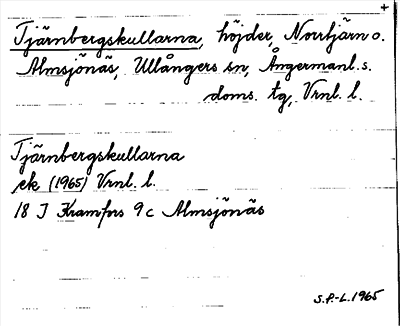 +
Tjärnbergskullarna, höjder, Norrtjärn o.
Almsjönäs, Ullångers sn, Ångermanl. s.
doms. tg, Vrnl. l.
Tjärnbergskullarna
ek (1965) Vrnl. l.
18 J Kramfors 9 c Almsjönäs
S.P.-L. 1965